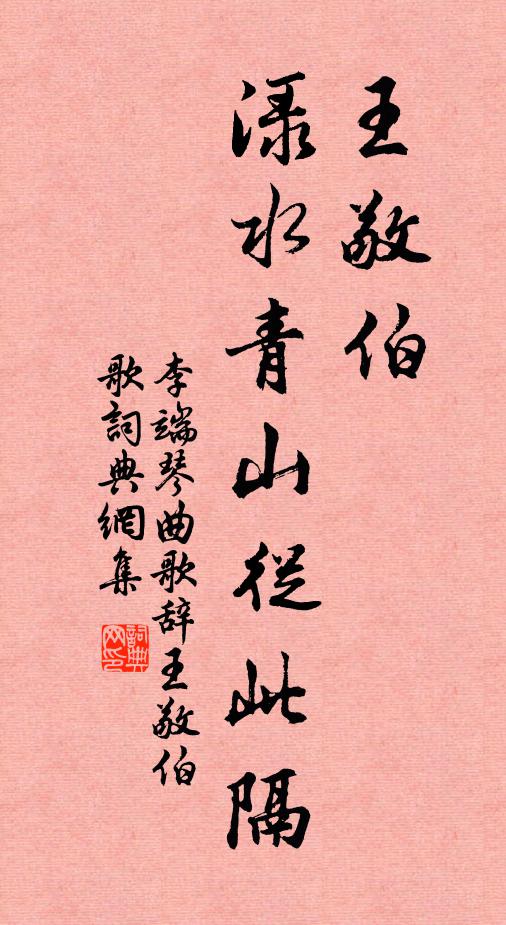 王敬伯
渌水青山從此隔
李端琴曲歌辞王敬伯
歌詞典網集
詞典網印